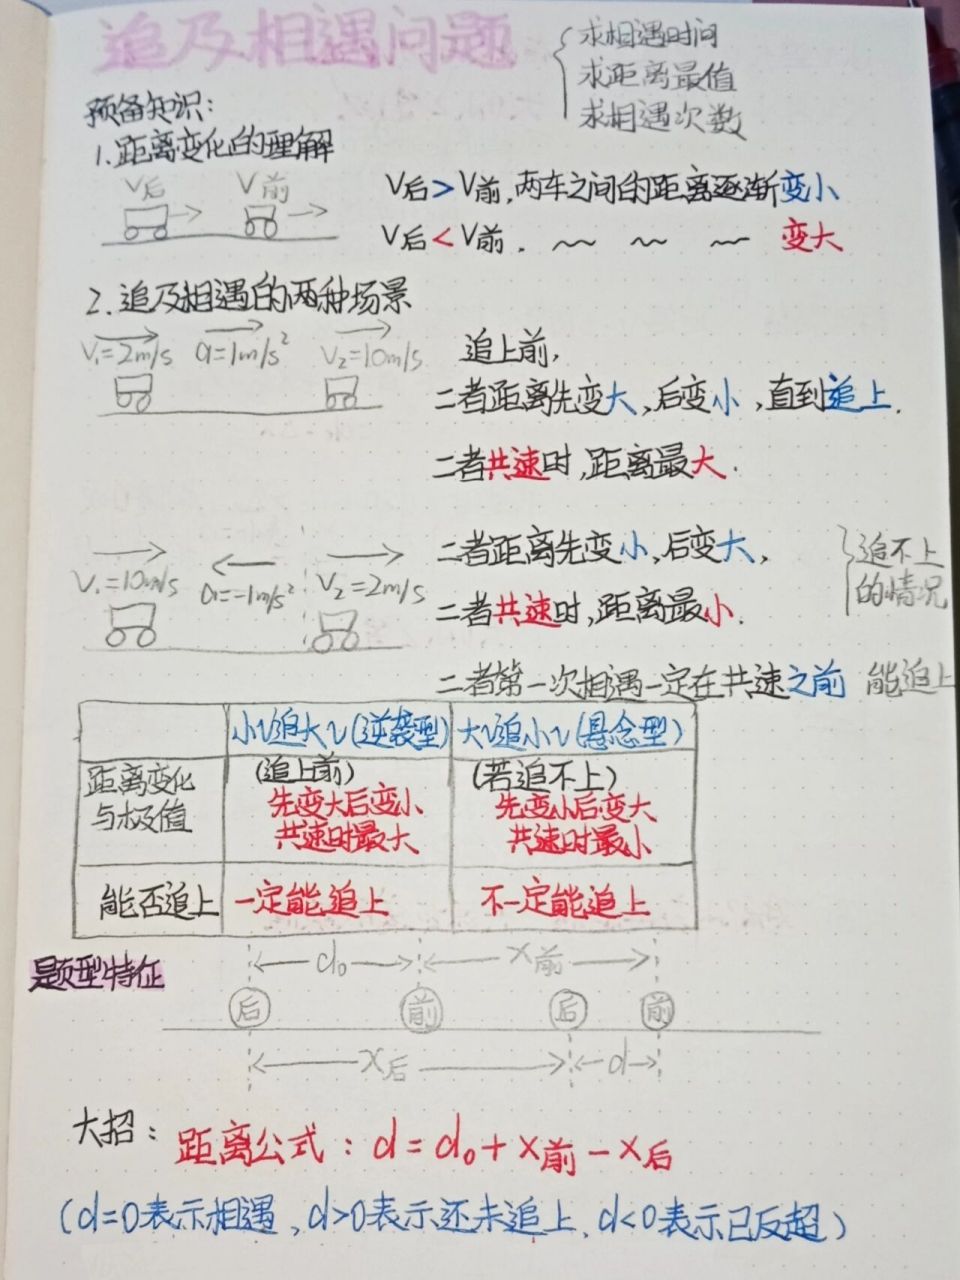 追及相遇问题
求相遇时间
求距离最值
求相遇次数
预备知识：
1.距离变化的理解
V后 V前
V后>V前,两车之间的距离逐渐变小
V后<V前. ～ ～ ～ 变大
2.追及相遇的两种场景
V₁=2m/s a=1m/s² V₂=10m/s
追上前,
二者距离先变大,后变小,直到追上.
二者共速时,距离最大.
V₁=10m/s a=-1m/s² V₂=2m/s
二者距离先变小,后变大,
二者共速时,距离最小.
追不上
的情况
二者第一次相遇一定在共速之前 能追上
小V追大V(逆袭型) 大V追小V(悬念型)
距离变化
与极值
(追上前)
先变大后变小
共速时最大
(若追不上)
先变小后变大
共速时最小
能否追上 一定能追上 不一定能追上
题型特征
d₀ x前
后 前 后 前
x后 d
大招：
距离公式：d=d₀+x前-x后
(d=0表示相遇,d>0表示还未追上,d<0表示已反超)